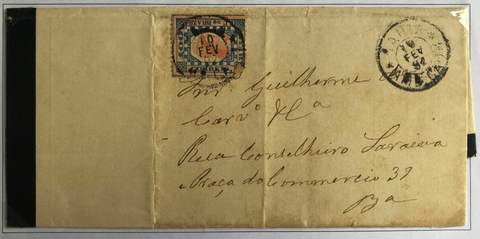 10
FEV
10
FEV
92
Snr Guilherme
Carvº & Cª
Rua Conselheiro Saraiva
Praça do Commercio 39
Ba